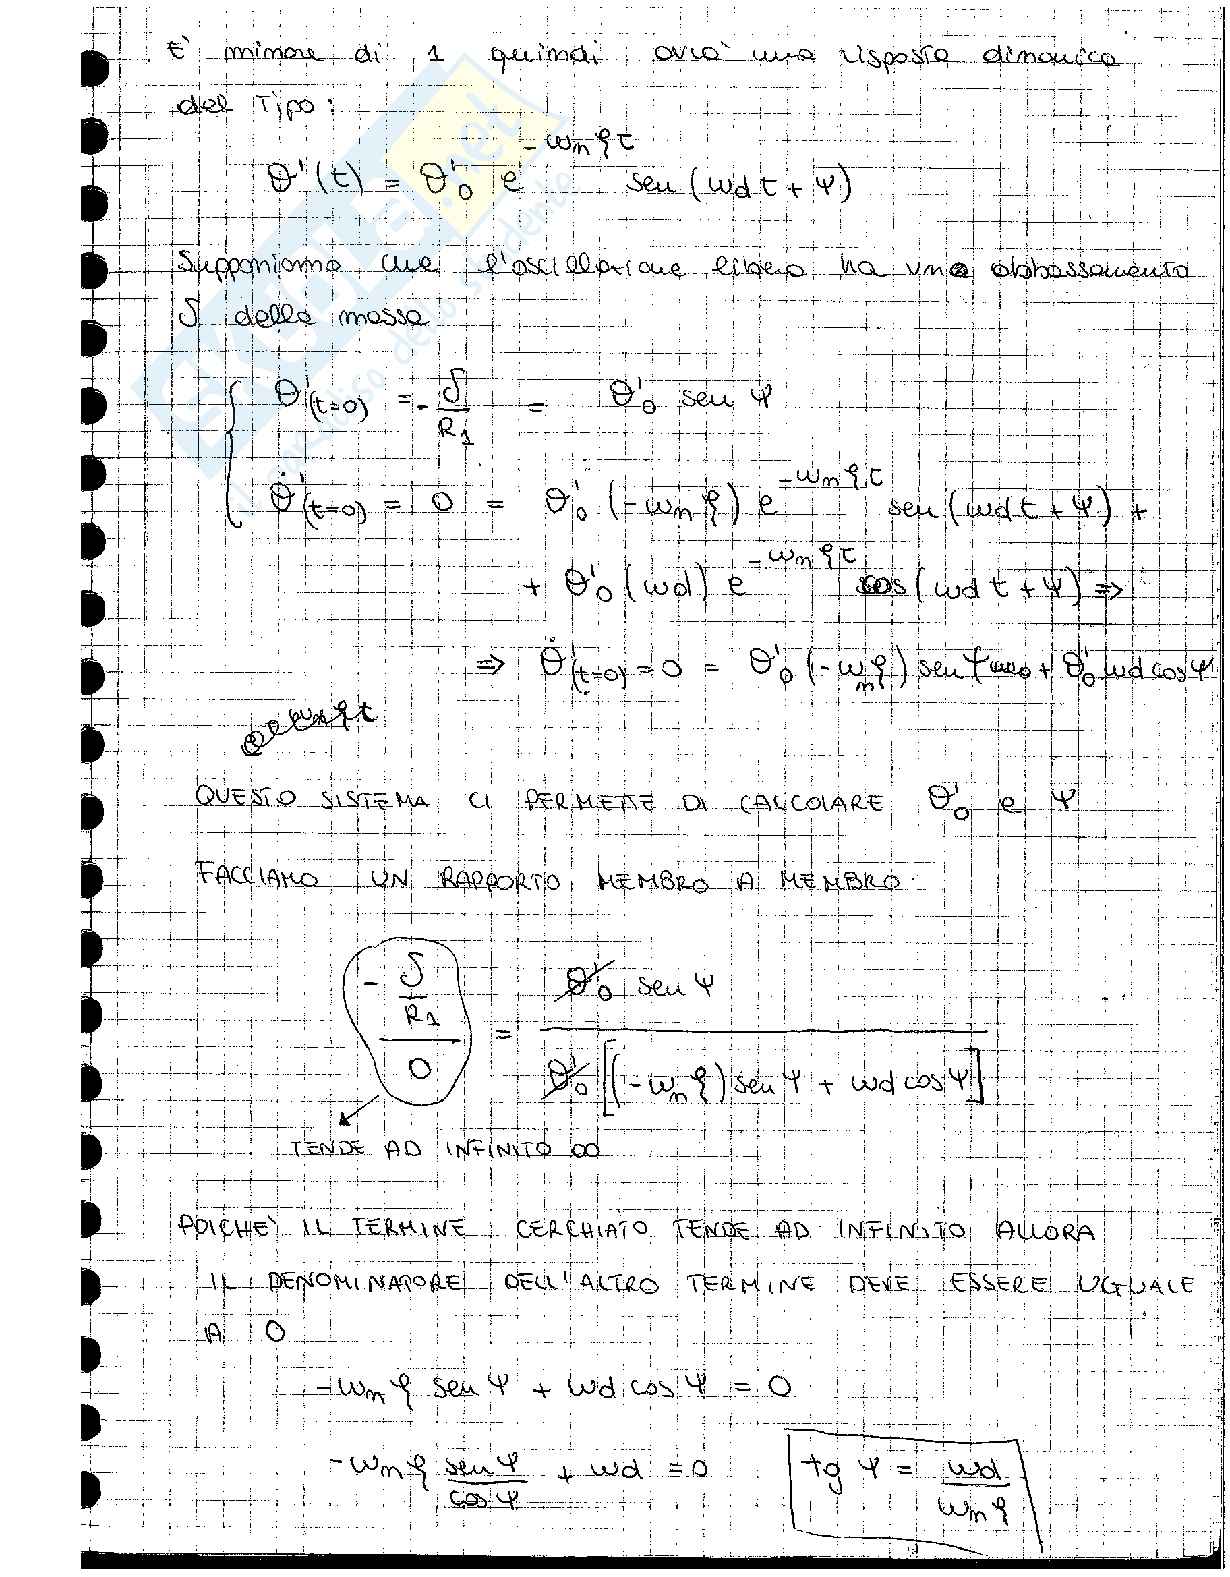 E' minore di 1 quindi avrò una risposta dinamica
del Tipo:
θ'(t) = θ'₀ e^(-ωn ξ t) sen(ωd t + Ψ)
Supponiamo che l'oscillazione libera ha una abbassamento
δ della massa
{ θ'(t=0) = - δ/R1 = θ'₀ sen Ψ
θ̇'(t=0) = 0 = θ'₀ (-ωn ξ) e^(-ωn ξ t) sen(ωd t + Ψ) +
+ θ'₀ (ωd) e^(-ωn ξ t) cos(ωd t + Ψ) =>
=> θ̇'(t=0) = 0 = θ'₀ (-ωn ξ) sen Ψ + θ'₀ ωd cos Ψ
QUESTO SISTEMA CI PERMETTE DI CALCOLARE θ'₀ e Ψ
FACCIAMO UN RAPPORTO MEMBRO A MEMBRO
(- δ/R1) / 0 = θ'₀ sen Ψ / θ'₀ [(-ωn ξ) sen Ψ + ωd cos Ψ]
TENDE AD INFINITO ∞
POICHE' IL TERMINE CERCHIATO TENDE AD INFINITO ALLORA
IL DENOMINATORE DELL'ALTRO TERMINE DEVE ESSERE UGUALE
A 0
-ωn ξ sen Ψ + ωd cos Ψ = 0
-ωn ξ sen Ψ/cos Ψ + ωd = 0 tg Ψ = ωd/ωn ξ